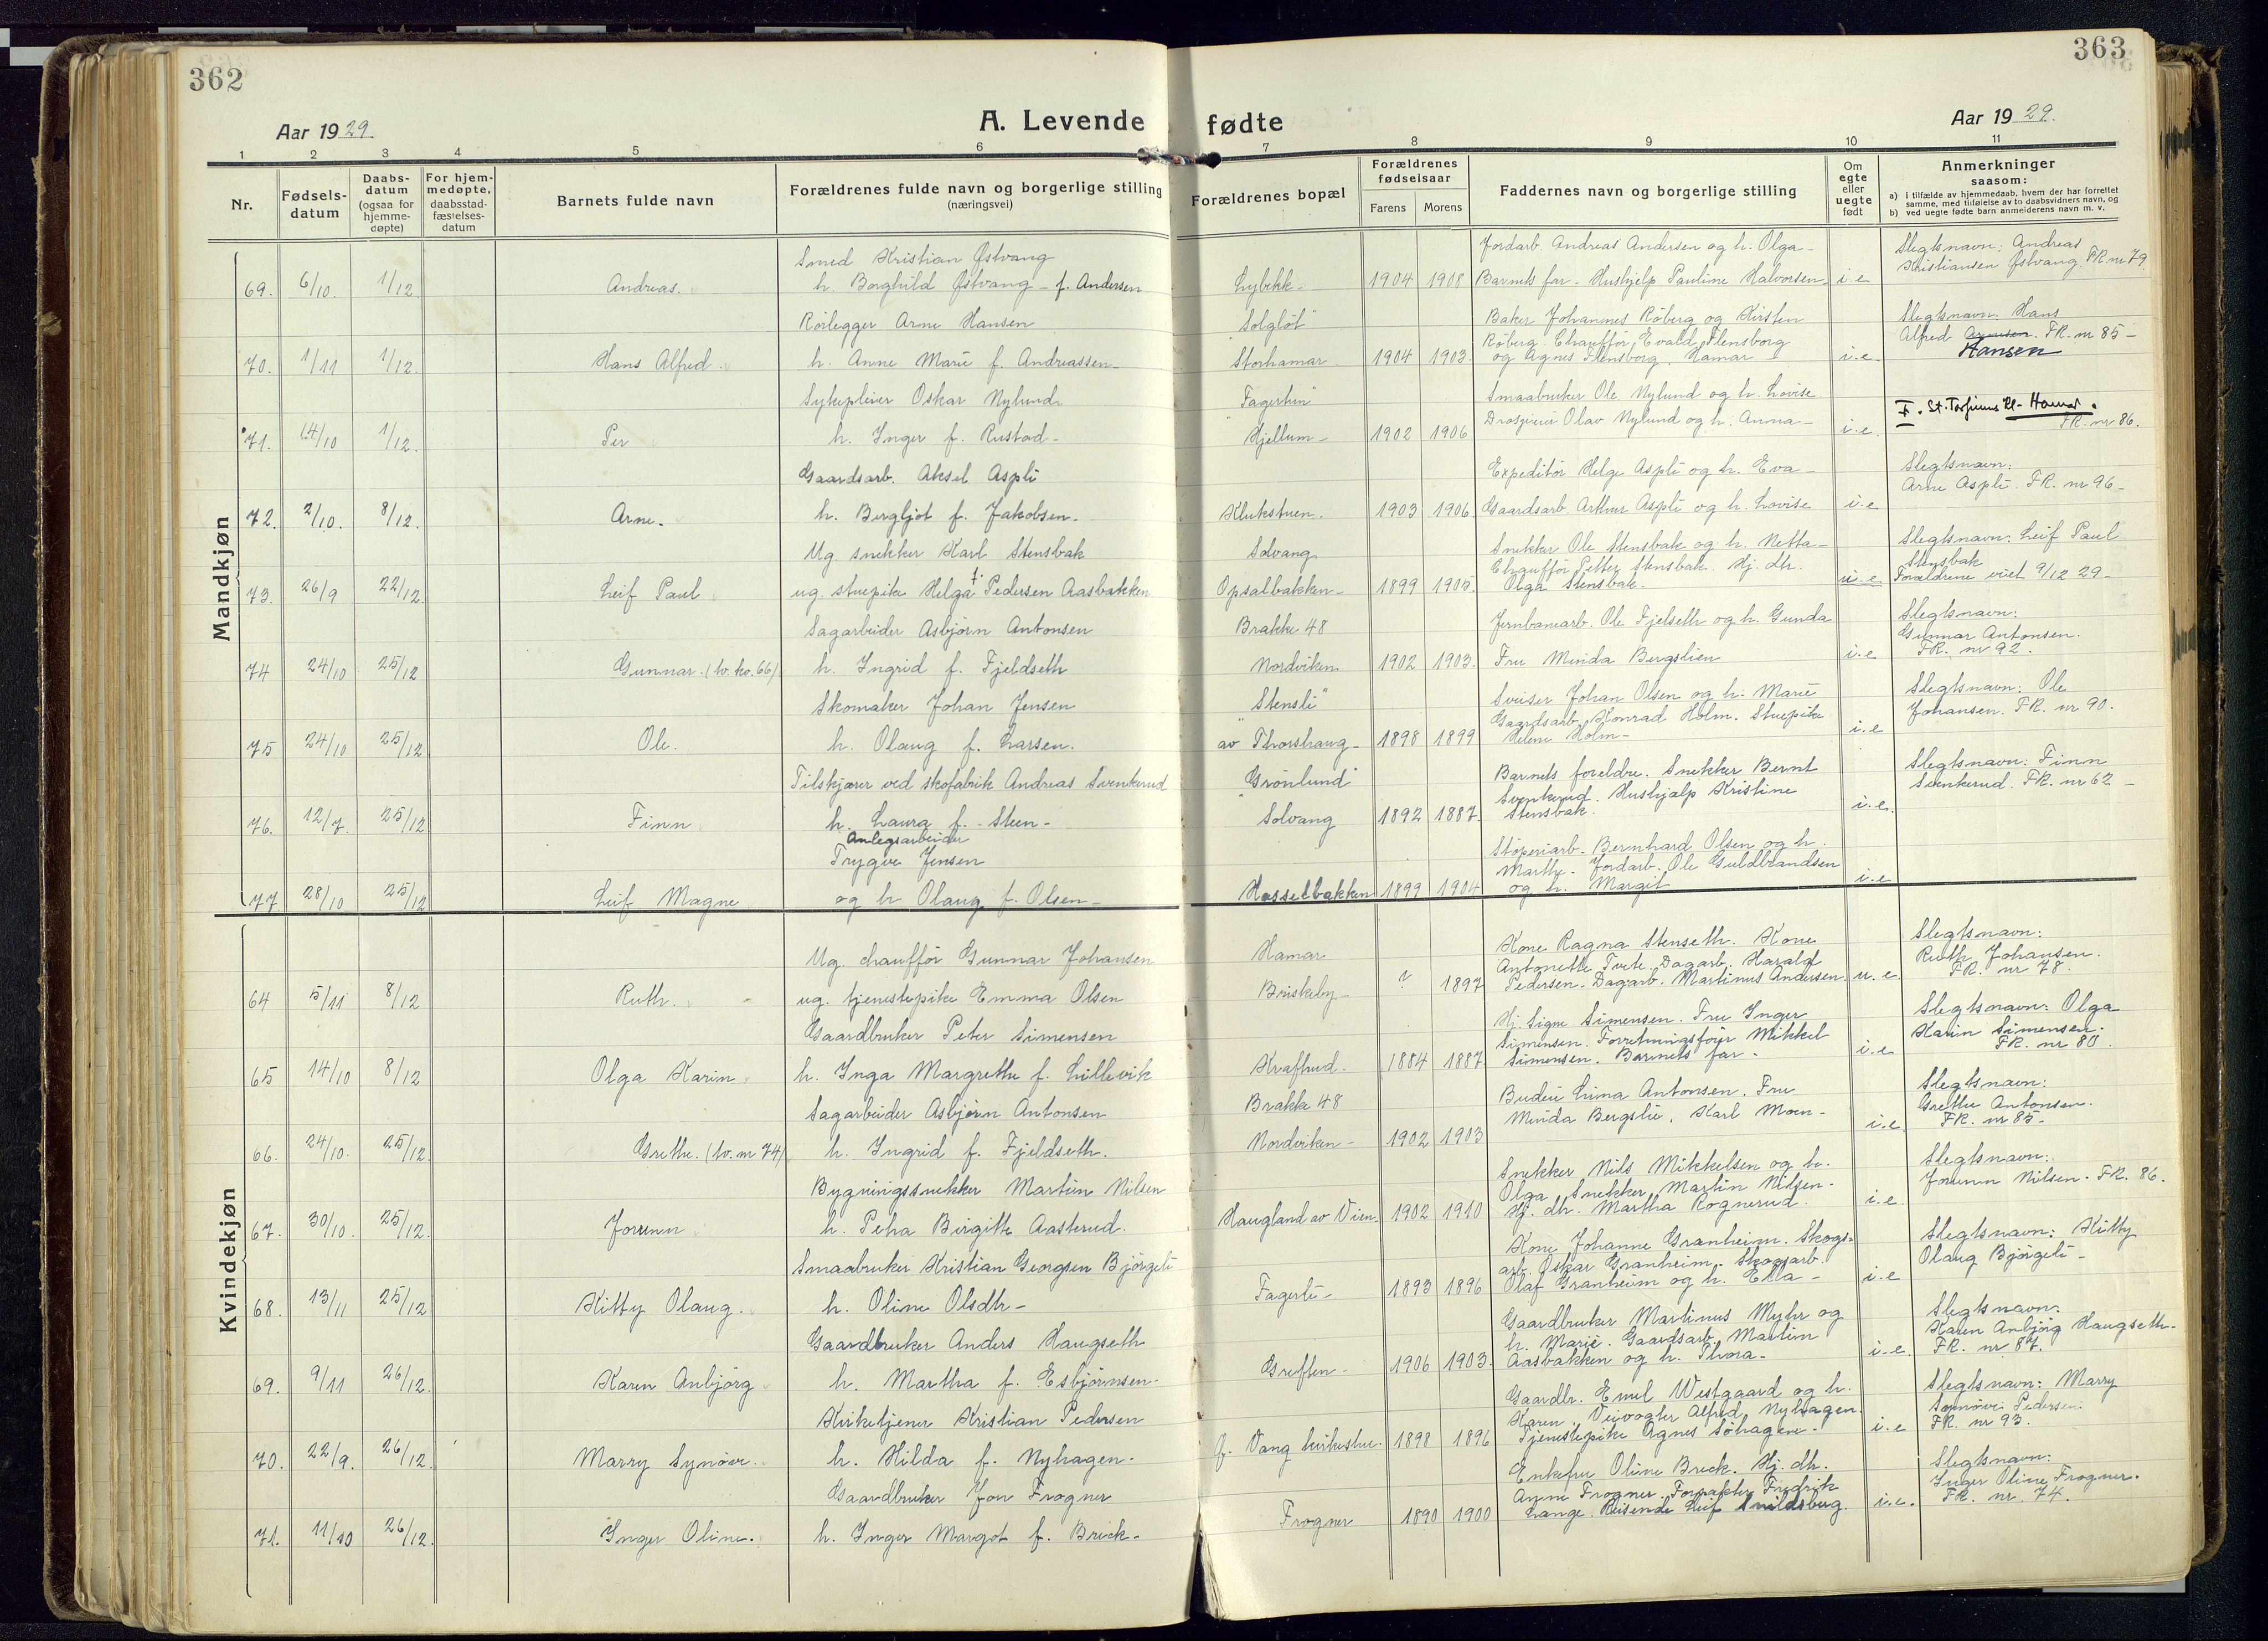 362
363
Aar 1929.
A. Levende fødte
Aar 1929.
1 2 3 4 5 6 7 8 9 10 11
Nr.
Fødsels-
datum
Daabs-
datum
(ogsaa for
hjemme-
døpte)
For hjem-
medøpte,
daabsstad-
fæstelses-
datum
Barnets fulde navn
Forældrenes fulde navn og borgerlige stilling
(næringsvei)
Forældrenes bopæl
Forældrenes
fødselsaar
Farens Morens
Faddernes navn og borgerlige stilling
Om
egte
eller
uegte
født
Anmerkninger
saasom:
a) i tilfælde av hjemmedaab, hvem der har forrettet
samme, med tilføielse av to daabsvidners navn, og
b) ved uegte fødte barn anmelderens navn m. v.
Mandkjøn
Smed Kristian Østvang
69. 6/10. 1/12 Andreas. h. Borghild Østvang - f. Andersen
Lybekk - 1904 1908
Jordarb. Andreas Andersen og h. Olga -
Barnets far - Hushjelp Pauline Halvorsen i.e
Slegtsnavn: Andreas
Kristiansen Østvang. FR nr 79.
Rørlegger Arne Hansen
70. 1/11 1/12. Hans Alfred. h. Anne Marie f. Andreassen -
"Solgløt"
Storhamar 1904 1903.
Baker Johannes Røberg og Kirsten
Røberg. Chauffør Evald Flensborg
og Agnes Flensborg. Hamar i.e.
Slegtsnavn: Hans
Alfred Arnesen. FR. nr 85 -
Hansen
Sykepleier Oskar Nylund
71. 14/10 1/12. Per h. Inger f. Rustad -
"Fagertun"
Hjellum - 1902 1906
Smaabruker Ole Nylund og h. Lovise
Drosjeeier Olav Nylund og h. Anna - i.e.
F. St. Torfinns Kl - Hamar.
FR. nr 86.
Gaardsarb. Aksel Aspli
72. 2/10. 8/12. Arne. h. Bergljot f. Jakobsen.
Klukstuen. 1903 1906
Expeditør Helge Aspli og h. Eva -
Gaardsarb. Arthur Aspli og h. Lovise i.e
Slegtsnavn:
Arne Aspli. FR. nr 96 -
Ug. snekker Karl Stensbak
73. 26/9 22/12. Leif Paul ug. stuepike Helga Pedersen Aasbakken
Solvang
Opsalbakken - 1899 1905.
Snekker Ole Stensbak og h. Netta -
Chauffør Petter Stensbak. Hj. dtr.
Olga Stensbak. u.e
Slegtsnavn: Leif Paul
Stensbak
Forældrene viet 9/12 29 -
Sagarbeider Asbjørn Antonsen
74 24/10 25/12 Gunnar. (tv. kv. 66) h. Ingrid f. Fjeldseth
Brakke 48
Nordviken 1902 1903.
Jernbanearb. Ole Fjelseth og h. Gunda
Fru Minda Bergslien i.e
Slegtsnavn:
Gunnar Antonsen.
FR. nr 92.
Skomaker Johan Jensen
75 24/10 25/12 Ole. h. Olaug f. Larsen.
"Stensli"
av Thorshaug - 1898 1899
Sveiser Johan Olsen og h. Marie
Gaardsarb. Konrad Holm. Stuepike
Helene Holm - i.e
Slegtsnavn: Ole
Johansen. FR. nr 90.
Tilskjærer ved skofabrik Andreas Svenkerud
76. 12/7. 25/12 Finn h. Laura f. Steen -
"Grønlund"
Solvang 1892 1887.
Barnets foreldre. Snekker Bernt
Svenkerud. Hushjelp Kristine
Stensbak. i.e.
Slegtsnavn: Finn
Svenkerud. FR. nr 62 -
Anlegsarbeider
Trygve Jensen
77 28/10 25/12 Leif Magne og h Olaug f. Olsen -
Hasselbakken 1899 1904
Støperiarb. Bernhard Olsen og h.
Marthe - Jordarb. Ole Guldbrandsen
og h. Margit i.e
Kvindekjøn
Ug. chauffør Gunnar Johansen
64 5/11 8/12 Ruth. ug. tjenestepike Emma Olsen
Hamar
Briskeby - ? 1897
Kone Ragna Stenseth. Kone
Antonette Tvete. Dagarb. Harald
Pedersen. Dagarb. Martinus Andersen u.e
Slegtsnavn:
Ruth Johansen.
FR. nr 78.
Gaardbruker Peter Simensen
65 14/10 8/12 Olga Karin h. Inga Margrethe f. Lillevik
Kraftrud. 1884 1887
Hj. Signe Simensen. Fru Inger
Simensen. Forretningsfører Mikkel
Simensen. Barnets far - i.e
Slegtsnavn: Olga
Karin Simensen.
FR. nr 80.
Sagarbeider Asbjørn Antonsen
66. 24/10. 25/12. Grethe. (tv. m 74) h. Ingrid f. Fjeldseth.
Brakke 48
Nordviken - 1902 1903
Budeie Lina Antonsen. Fru
Minda Bergslie. Karl Moen - i.e
Slegtsnavn:
Grethe Antonsen.
FR. nr 85 -
Bygningssnekker Martin Nilsen
67. 30/10. 25/12. Jorunn h. Petra Birgitte Aasterud.
Haugland av Vien. 1902 1910
Snekker Nils Mikkelsen og h.
Olga. Snekker Martin Nilsen.
Hj. dtr. Martha Rognerud. i.e
Slegtsnavn:
Jorunn Nilsen. FR. 86.
Smaabruker Kristian Georgsen Bjørgeli
68. 13/11 25/12 Kitty Olaug. h. Oline Olsdtr -
Fagerli - 1893 1896
Kone Johanne Granheim. Skogs-
arb. Oskar Granheim. Skogsarb.
Olaf Granheim og h. Ella - i.e
Slegtsnavn: Kitty
Olaug Bjørgeli -
Gaardbruker Anders Haugseth
69. 9/11 26/12. Karen Anbjørg h. Martha f. Esbjørnsen.
Greften - 1906 1903.
Gaardbruker Martinus Myhr og
h. Marie. Gaardsarb. Martin
Aasbakken og h. Thora - i.e.
Slegtsnavn:
Karen Anbjørg Haugseth.
FR. nr 87.
Kirketjener Kristian Pedersen
70. 22/9. 26/12. Marry Synøve. h. Hilda f. Nyhagen.
Vang 1898 1896
Gaardbr. Emil Westgaard og h.
Karen. Veivogter Alfred Nyhagen.
Tjenestepike Agnes Søhagen. i.e
Slegtsnavn: Marry
Synøve Pedersen.
FR. nr 93.
Gaardbruker Jon Frogner
71. 11/10 26/12. Inger Oline. h. Inger Margot f. Breck -
Frogner 1890 1900
Enkefru Oline Breck. Hj. dtr.
Anne Frogner. Forpakter Fredrik
Lange. Reisende Leif Smidsberg. i.e.
Slegtsnavn:
Inger Oline Frogner.
FR. nr. 74.